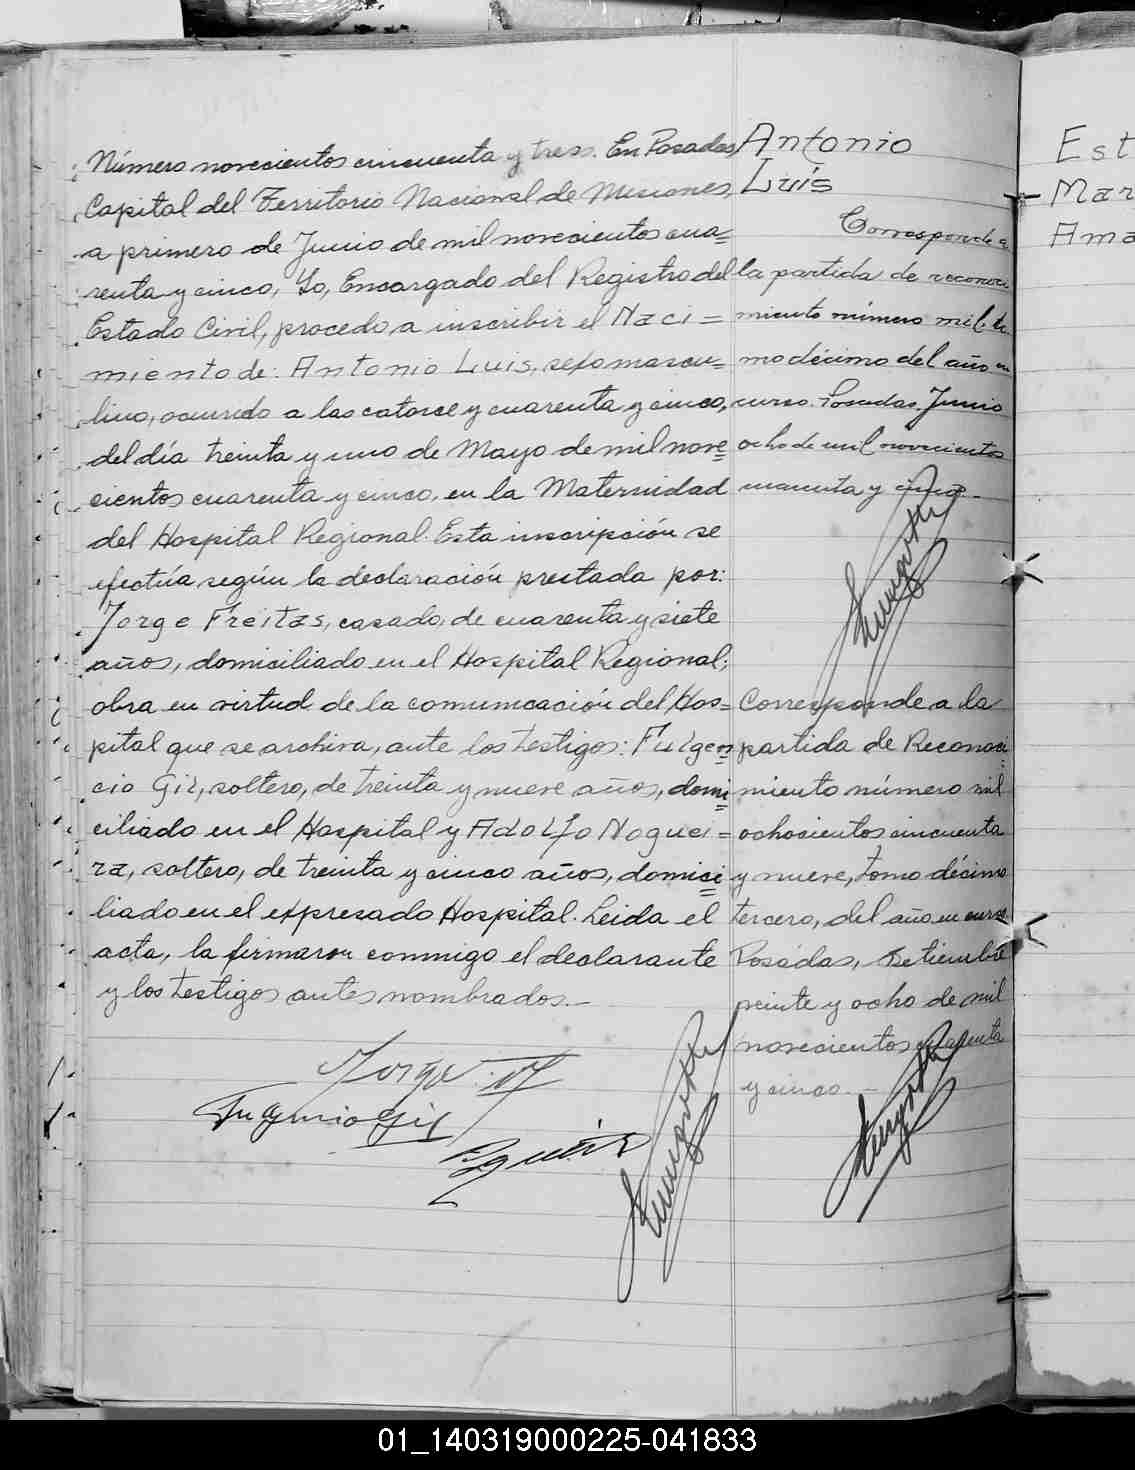 Número novecientos cincuenta y tres. En Posadas
Capital del Territorio Nacional de Misiones,
a primero de Junio de mil novecientos cua=
renta y cinco, Yo, Encargado del Registro del
Estado Civil, procedo a inscribir el Naci=
miento de: Antonio Luis, sexo mascu=
lino, ocurrido a las catorce y cuarenta y cinco,
del día treinta y uno de Mayo de mil nove=
cientos cuarenta y cinco, en la Maternidad
del Hospital Regional. Esta inscripción se
efectúa según la declaración prestada por:
Jorge Freitas, casado, de cuarenta y siete
años, domiciliado en el Hospital Regional;
obra en virtud de la comunicación del Hos=
pital que se archiva, ante los testigos: Fulgen=
cio Gil, soltero, de treinta y nueve años, domi=
ciliado en el Hospital y Adolfo Noguei=
ra, soltero, de treinta y cinco años, domici=
liado en el expresado Hospital. Leida el
acta, la firmaron conmigo el declarante
y los testigos antes nombrados.-
Antonio
Luis
Corresponde a
la partida de reconoci
miento número mil
mo décimo del año en
curso. Posadas, Junio
ocho de mil novecientos
cuarenta y cinco.-
Corresponde a la
partida de Reconoci=
miento número mil
ochocientos cincuenta
y nueve, tomo décimo
tercero, del año en curso.
Posadas, Setiembre
veinte y ocho de mil
novecientos cuarenta
y cinco.-
Jorge
Fulgencio Gil
Est
Mar
Ama
01_140319000225-041833